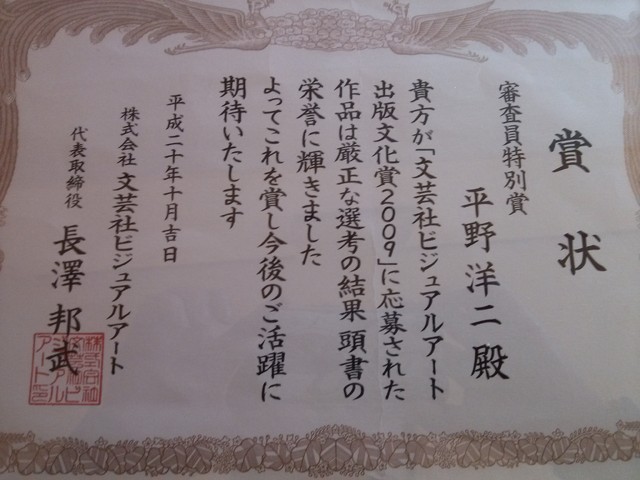 賞状
審査員特別賞
平野洋二殿
貴方が「文芸社ビジュアルアート
出版文化賞2009」に応募された
作品は厳正な選考の結果 頭書の
栄誉に輝きました
よってこれを賞し今後のご活躍に
期待いたします
平成二十年十月吉日
株式会社 文芸社ビジュアルアート
代表取締役 長澤邦武
株式会社
文芸社ビ
ジュアル
アート印